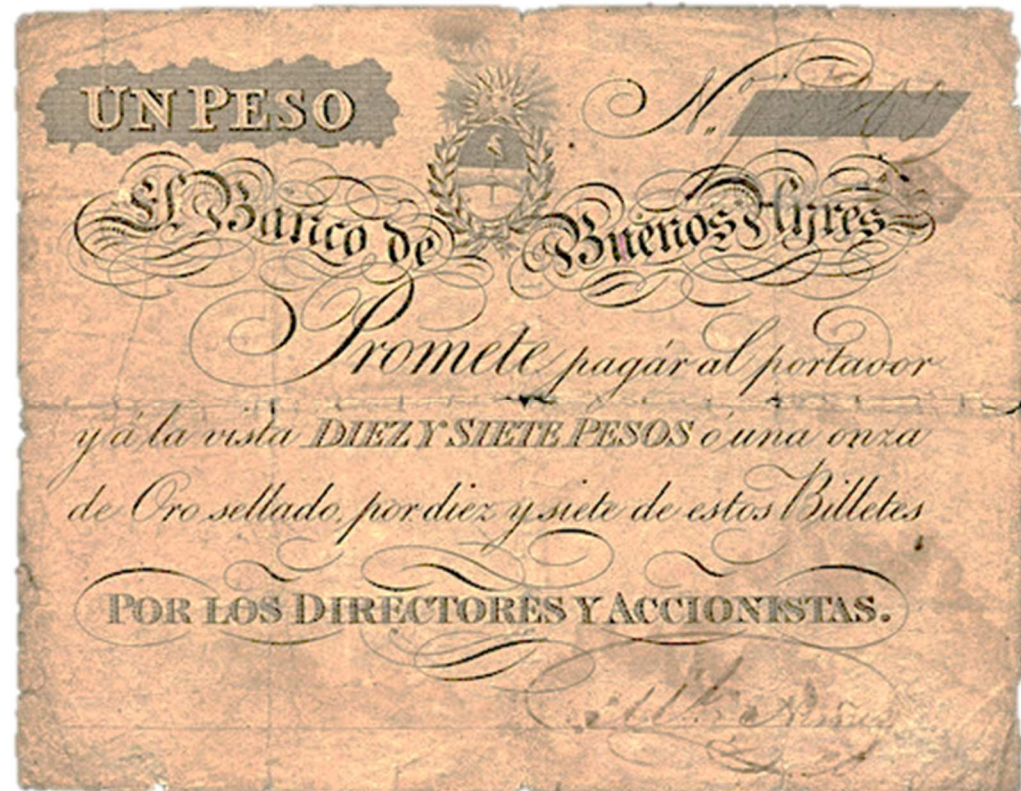 UN PESO
No.
El Banco de Buenos Ayres
Promete pagár al portador
y á la vista DIEZ Y SIETE PESOS ó una onza
de Oro sellado, por diez y siete de estos Billetes
POR LOS DIRECTORES Y ACCIONISTAS.